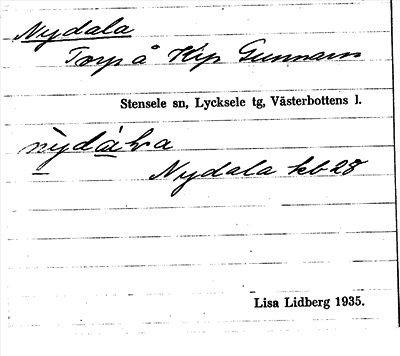 Nydala
Torp å Krp Gunnarn
Stensele sn, Lycksele tg, Västerbottens l.
Nydala kb 28
Lisa Lidberg 1935.